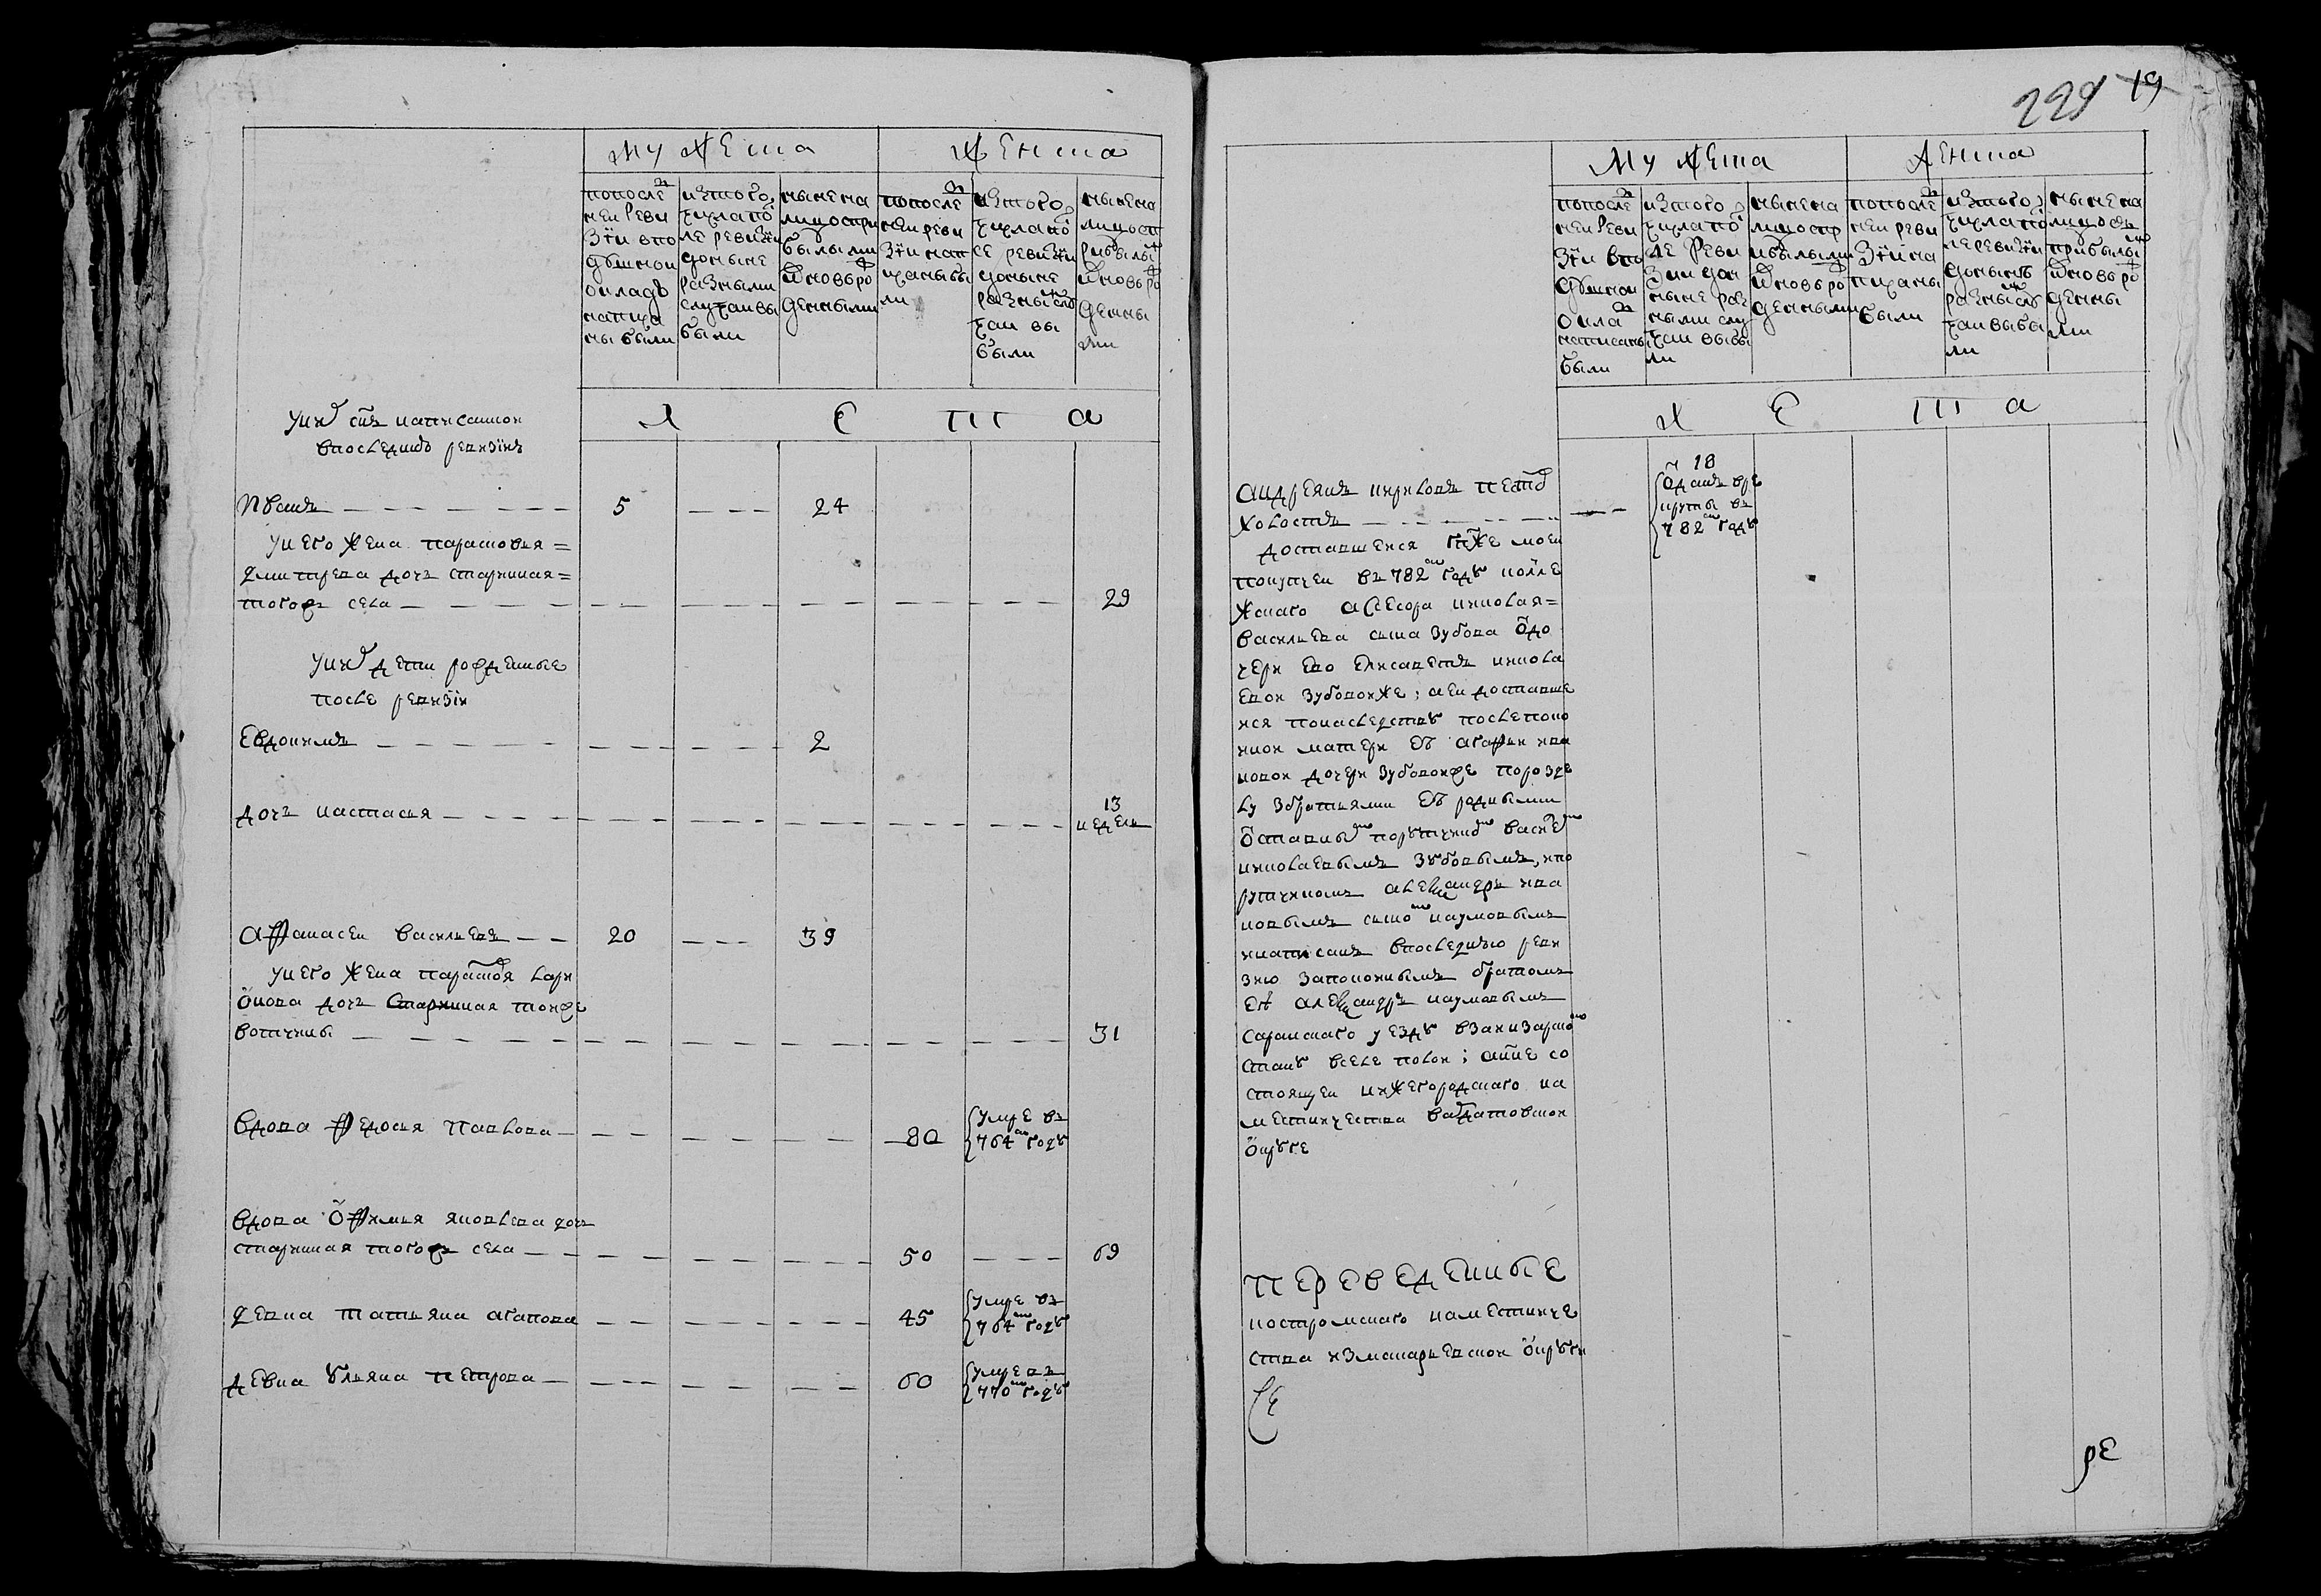 229 19
мужеска
женска
попослѣ
ней реви
зїи впо
душной
окладъ
написа
ны были
изтого
числа по
сле ревизїи
доныне
разными
случаи вы
были
ныне на
лицо спри
былыми
и вновь ро
жденными
попослѣ
ней реви
зїи нап
исаны бы
ли
изтого
числа по
сле ревизїи
доныне
разными слу
чаи вы
были
ныне на
лицо сп
рибылы
и вновь ро
жденны
ми
лета
у них сын написанной
впоследней ревизїи
Иван 5 24
у него жена парасковья
дмитрева дочь старинная
тогож села 29
у них дети рожденные
после ревизїи
Евдоким 2
дочь настасья 13
недель
Афанасей васильев 20 39
у него жена парасковья лари
онова дочь старинная тойже
вотчины 31
вдова Федосья павлова 80 умре в
764м году
вдова офимья яковлева дочь
старинная тогож села 50 69
девка татьяна агапова 45 умре в
764м году
девка ульяна петрова 60 умре в
770м году
мужеска
женска
попослѣ
ней реви
зїи впо
душной
окла
написаны
были
изтого
числа по
сле реви
зии дон
ныне раз
ными слу
чаи выбы
ли
ныне на
лицо спр
ибылыми
и вновь ро
жденными
попослѣ
ней реви
зїи на
писаны
были
изтого
числа по
сле ревизїи
доныне
разными слу
чаи выбы
ли
ныне на
лицо съ
прибылы
и вновь ро
жденны
ми
лета
андреян кирилов петров
холостъ 18
одан в ре
круты в
782м году
доставшейся мне же моей
покупкеи в 782м году колле
жскаго асесора николая
васильева сына зубова от до
чери ево елисавет никола
евой зубовой же; а ей доставше
йся понаследству после поко
йной матери ее агафьи ива
новой дочери зубовой же по розде
лу з братьями ее родными
отставным порутчиком васильем
николаевым зубовым, и по
рутчиком александр ива
новым сыном наумовым
и написан впоследнюю реви
зию за покойным братом
ее александр наумовым
саранскаго уезду в занизарском
стану в селе полои; а ныне со
стоящей нижегородскаго на
местничества в ардатовской
округе
переведенные
костромскаго наместниче
ства из макарьевской округи
ре